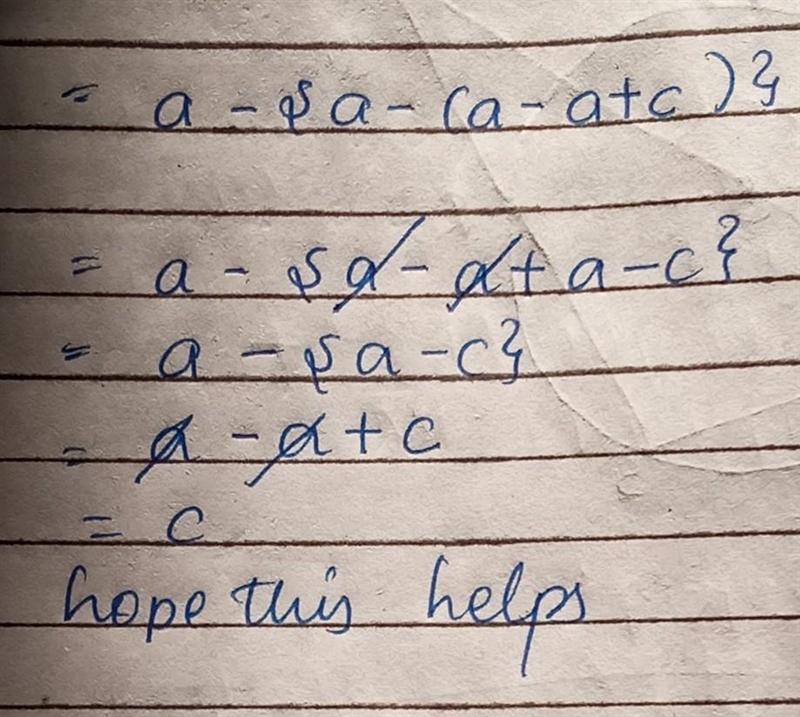 = a - {a - (a - a + c)}
= a - {a - a + a - c}
= a - {a - c}
= a - a + c
= c
hope this helps